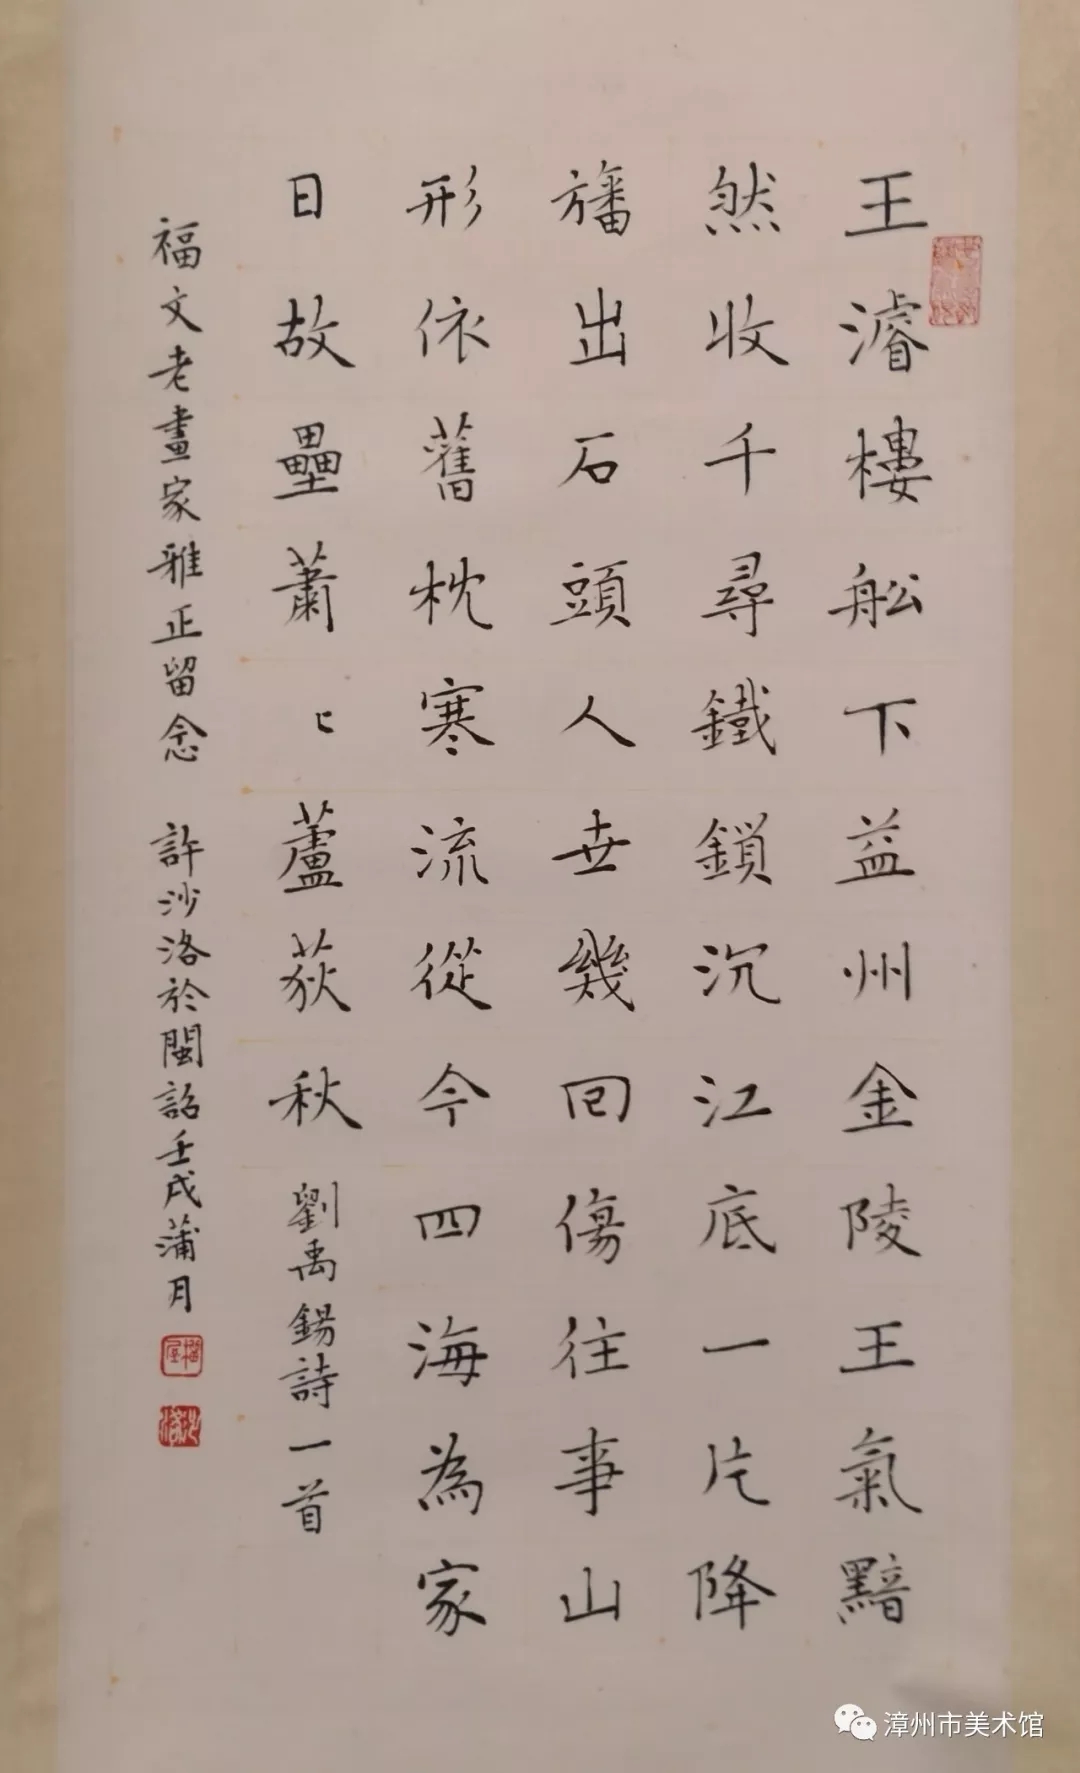 王濬樓舩下益州金陵王氣黯
然收千尋鐵鎖沉江底一片降
旛出石頭人世幾回傷往事山
形依舊枕寒流從今四海為家
日故壘蕭〻蘆荻秋 劉禹錫詩一首
福文老畫家雅正留念 許沙洛於閩詔壬戌蒲月
沙洛
漳州市美术馆